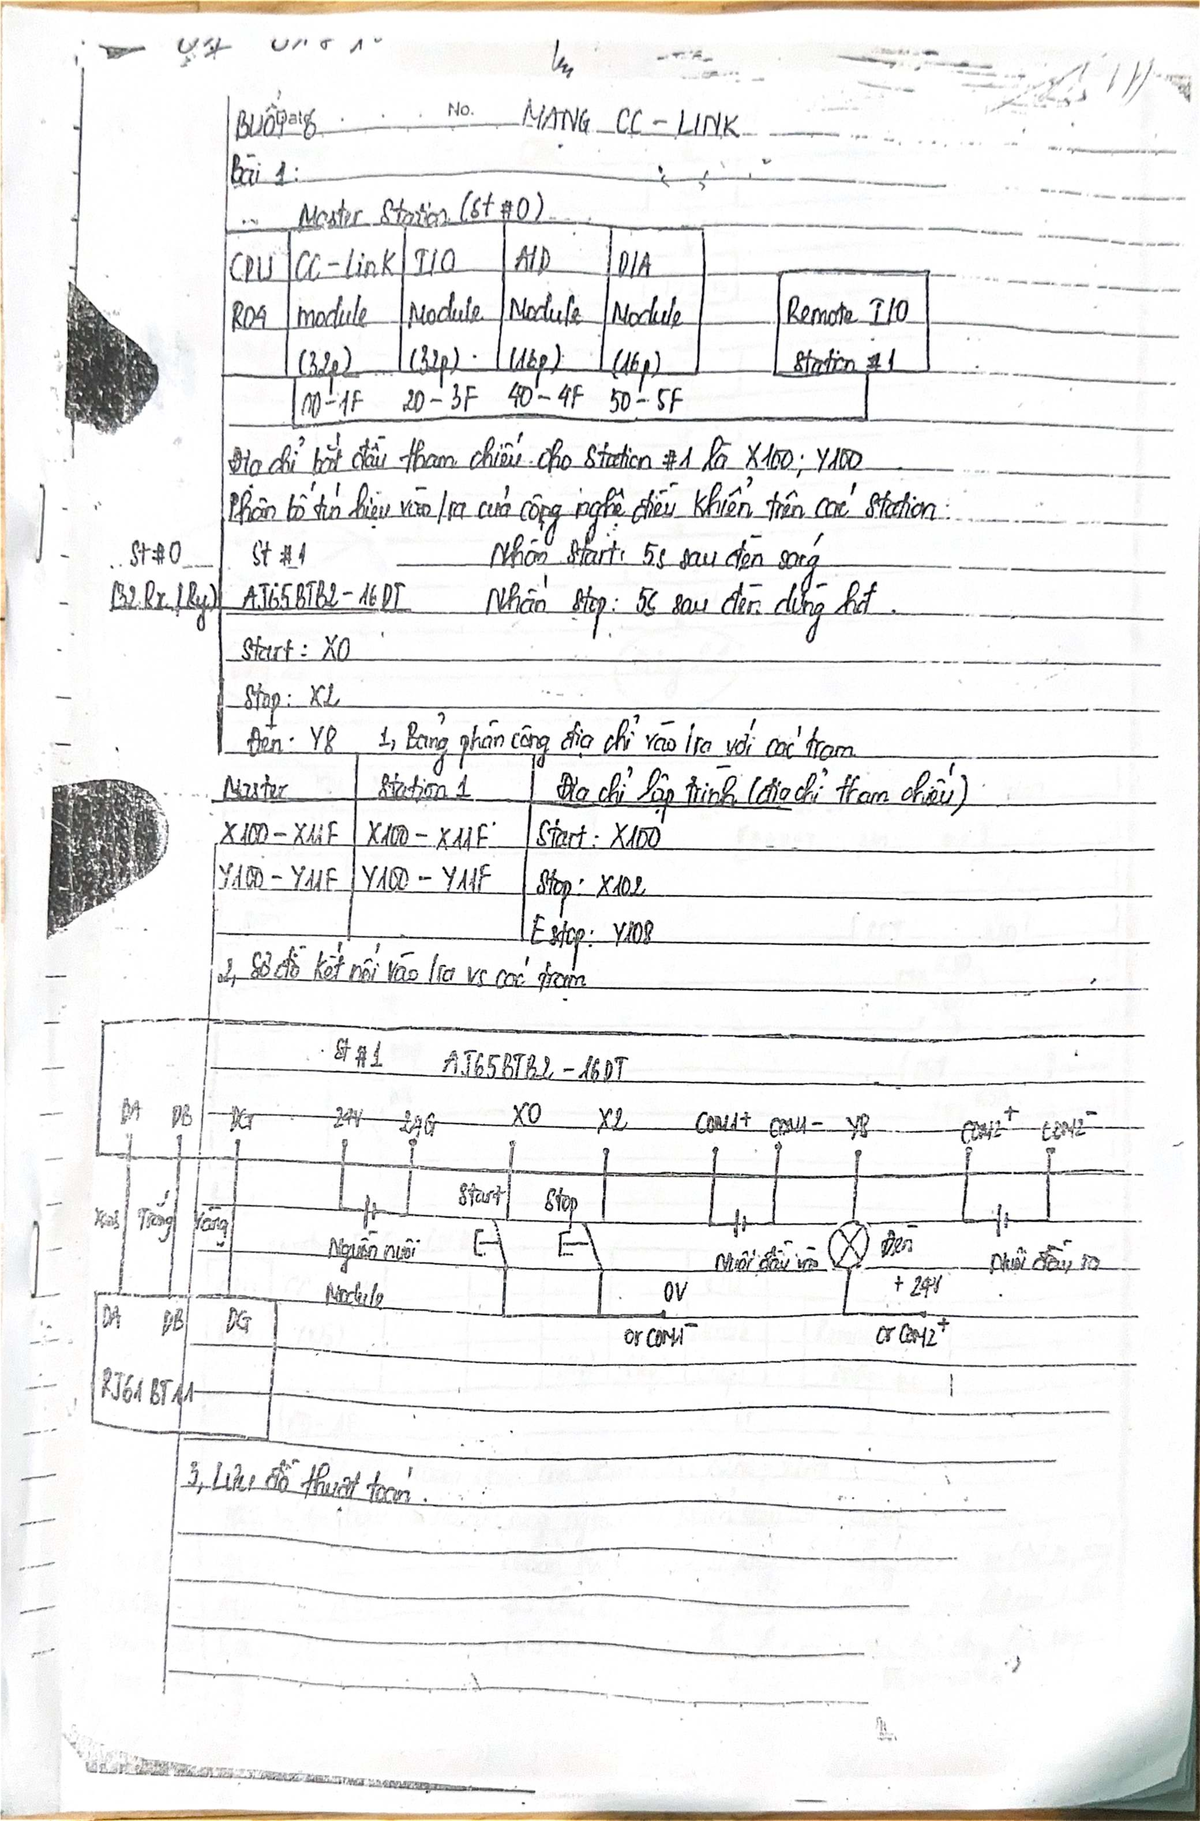 Buổi 8 No. MẠNG CC-LINK
Bài 1:
Master Station (St #0)
CPU CC-Link I/O A/D D/A
R04 module Module Module Module Remote I/O
(32p) (32p) (16p) (16p) Station #1
00-1F 20-3F 40-4F 50-5F
Địa chỉ bắt đầu tham chiếu cho Station #1 là X100; Y100
Phân bố tín hiệu vào/ra của công nghệ điều khiển trên các Station:
St#0 St #1 Nhấn Start: 5s sau đèn sáng
Rx (Ry) AJ65BTB2-16DT Nhấn Stop: 5s sau đèn dừng hết.
Start: X0
Stop: X2
Đèn: Y8 1, Bảng phân công địa chỉ vào/ra với các trạm
Master Station 1 Địa chỉ lập trình (địa chỉ tham chiếu)
X100-X11F X100-X11F Start: X100
Y100-Y11F Y100-Y11F Stop: X102
Estop: Y108
2, Sơ đồ kết nối vào/ra vs các trạm
St #1 AJ65BTB2-16DT
DA DB DG 24V 24G X0 X2 COM1+ COM1- Y8 COM2+ COM2-
Start Stop
Trắng Vàng Nguồn nuôi Nuôi đầu vào Đèn Nuôi đầu ra
Module 0V +24V
DA DB DG or COM1- or COM2+
RJ61BT11
3, Lưu đồ thuật toán.